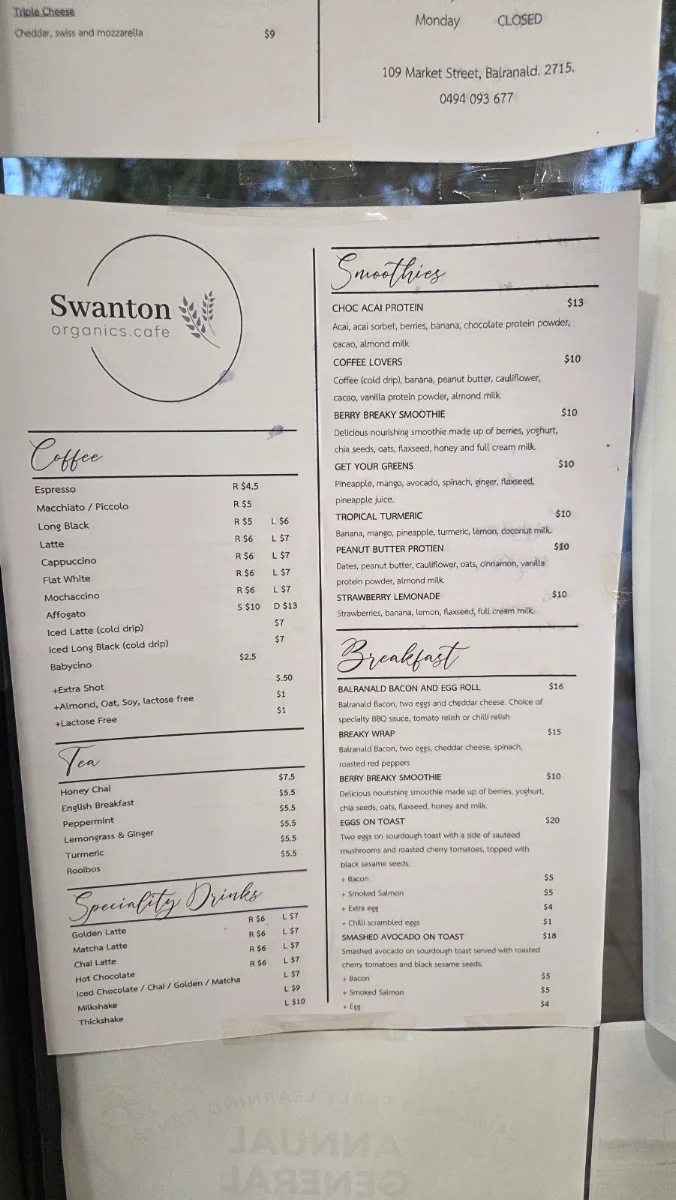 Triple Cheese
Cheddar, swiss and mozzarella $9
Monday CLOSED
109 Market Street, Balranald. 2715.
0494 093 677
Swanton
organics.cafe
Coffee
Espresso R $4.5
Macchiato / Piccolo R $5
Long Black R $5 L $6
Latte R $6 L $7
Cappuccino R $6 L $7
Flat White R $6 L $7
Mochaccino R $6 L $7
Affogato S $10 D $13
Iced Latte (cold drip) $7
Iced Long Black (cold drip) $7
Babycino $2.5
+Extra Shot $.50
+Almond, Oat, Soy, lactose free $1
+Lactose Free $1
Tea
Honey Chai $7.5
English Breakfast $5.5
Peppermint $5.5
Lemongrass & Ginger $5.5
Turmeric $5.5
Rooibos $5.5
Speciality Drinks
Golden Latte R $6 L $7
Matcha Latte R $6 L $7
Chai Latte R $6 L $7
Hot Chocolate R $6 L $7
Iced Chocolate / Chai / Golden / Matcha L $7
Milkshake L $9
Thickshake L $10
Smoothies
CHOC ACAI PROTEIN $13
Acai, acai sorbet, berries, banana, chocolate protein powder,
cacao, almond milk
COFFEE LOVERS $10
Coffee (cold drip), banana, peanut butter, cauliflower,
cacao, vanilla protein powder, almond milk.
BERRY BREAKY SMOOTHIE $10
Delicious nourishing smoothie made up of berries, yoghurt,
chia seeds, oats, flaxseed, honey and full cream milk.
GET YOUR GREENS $10
Pineapple, mango, avocado, spinach, ginger, flaxseed,
pineapple juice.
TROPICAL TURMERIC $10
Banana, mango, pineapple, turmeric, lemon, coconut milk.
PEANUT BUTTER PROTIEN $10
Dates, peanut butter, cauliflower, oats, cinnamon, vanilla
protein powder, almond milk
STRAWBERRY LEMONADE $10
Strawberries, banana, lemon, flaxseed, full cream milk.
Breakfast
BALRANALD BACON AND EGG ROLL $16
Balranald Bacon, two eggs and cheddar cheese. Choice of
specialty BBQ sauce, tomato relish or chilli relish
BREAKY WRAP $15
Balranald Bacon, two eggs, cheddar cheese, spinach,
roasted red peppers
BERRY BREAKY SMOOTHIE $10
Delicious nourishing smoothie made up of berries, yoghurt,
chia seeds, oats, flaxseed, honey and milk.
EGGS ON TOAST $20
Two eggs on sourdough toast with a side of sautéed
mushrooms and roasted cherry tomatoes, topped with
black sesame seeds.
+ Bacon $5
+ Smoked Salmon $5
+ Extra egg $4
+ Chilli scrambled eggs $1
SMASHED AVOCADO ON TOAST $18
Smashed avocado on sourdough toast served with roasted
cherry tomatoes and black sesame seeds.
+ Bacon $5
+ Smoked Salmon $5
+ Egg $4
BALRANALD EARLY LEARNING CENTRE
ANNUAL
GENERAL